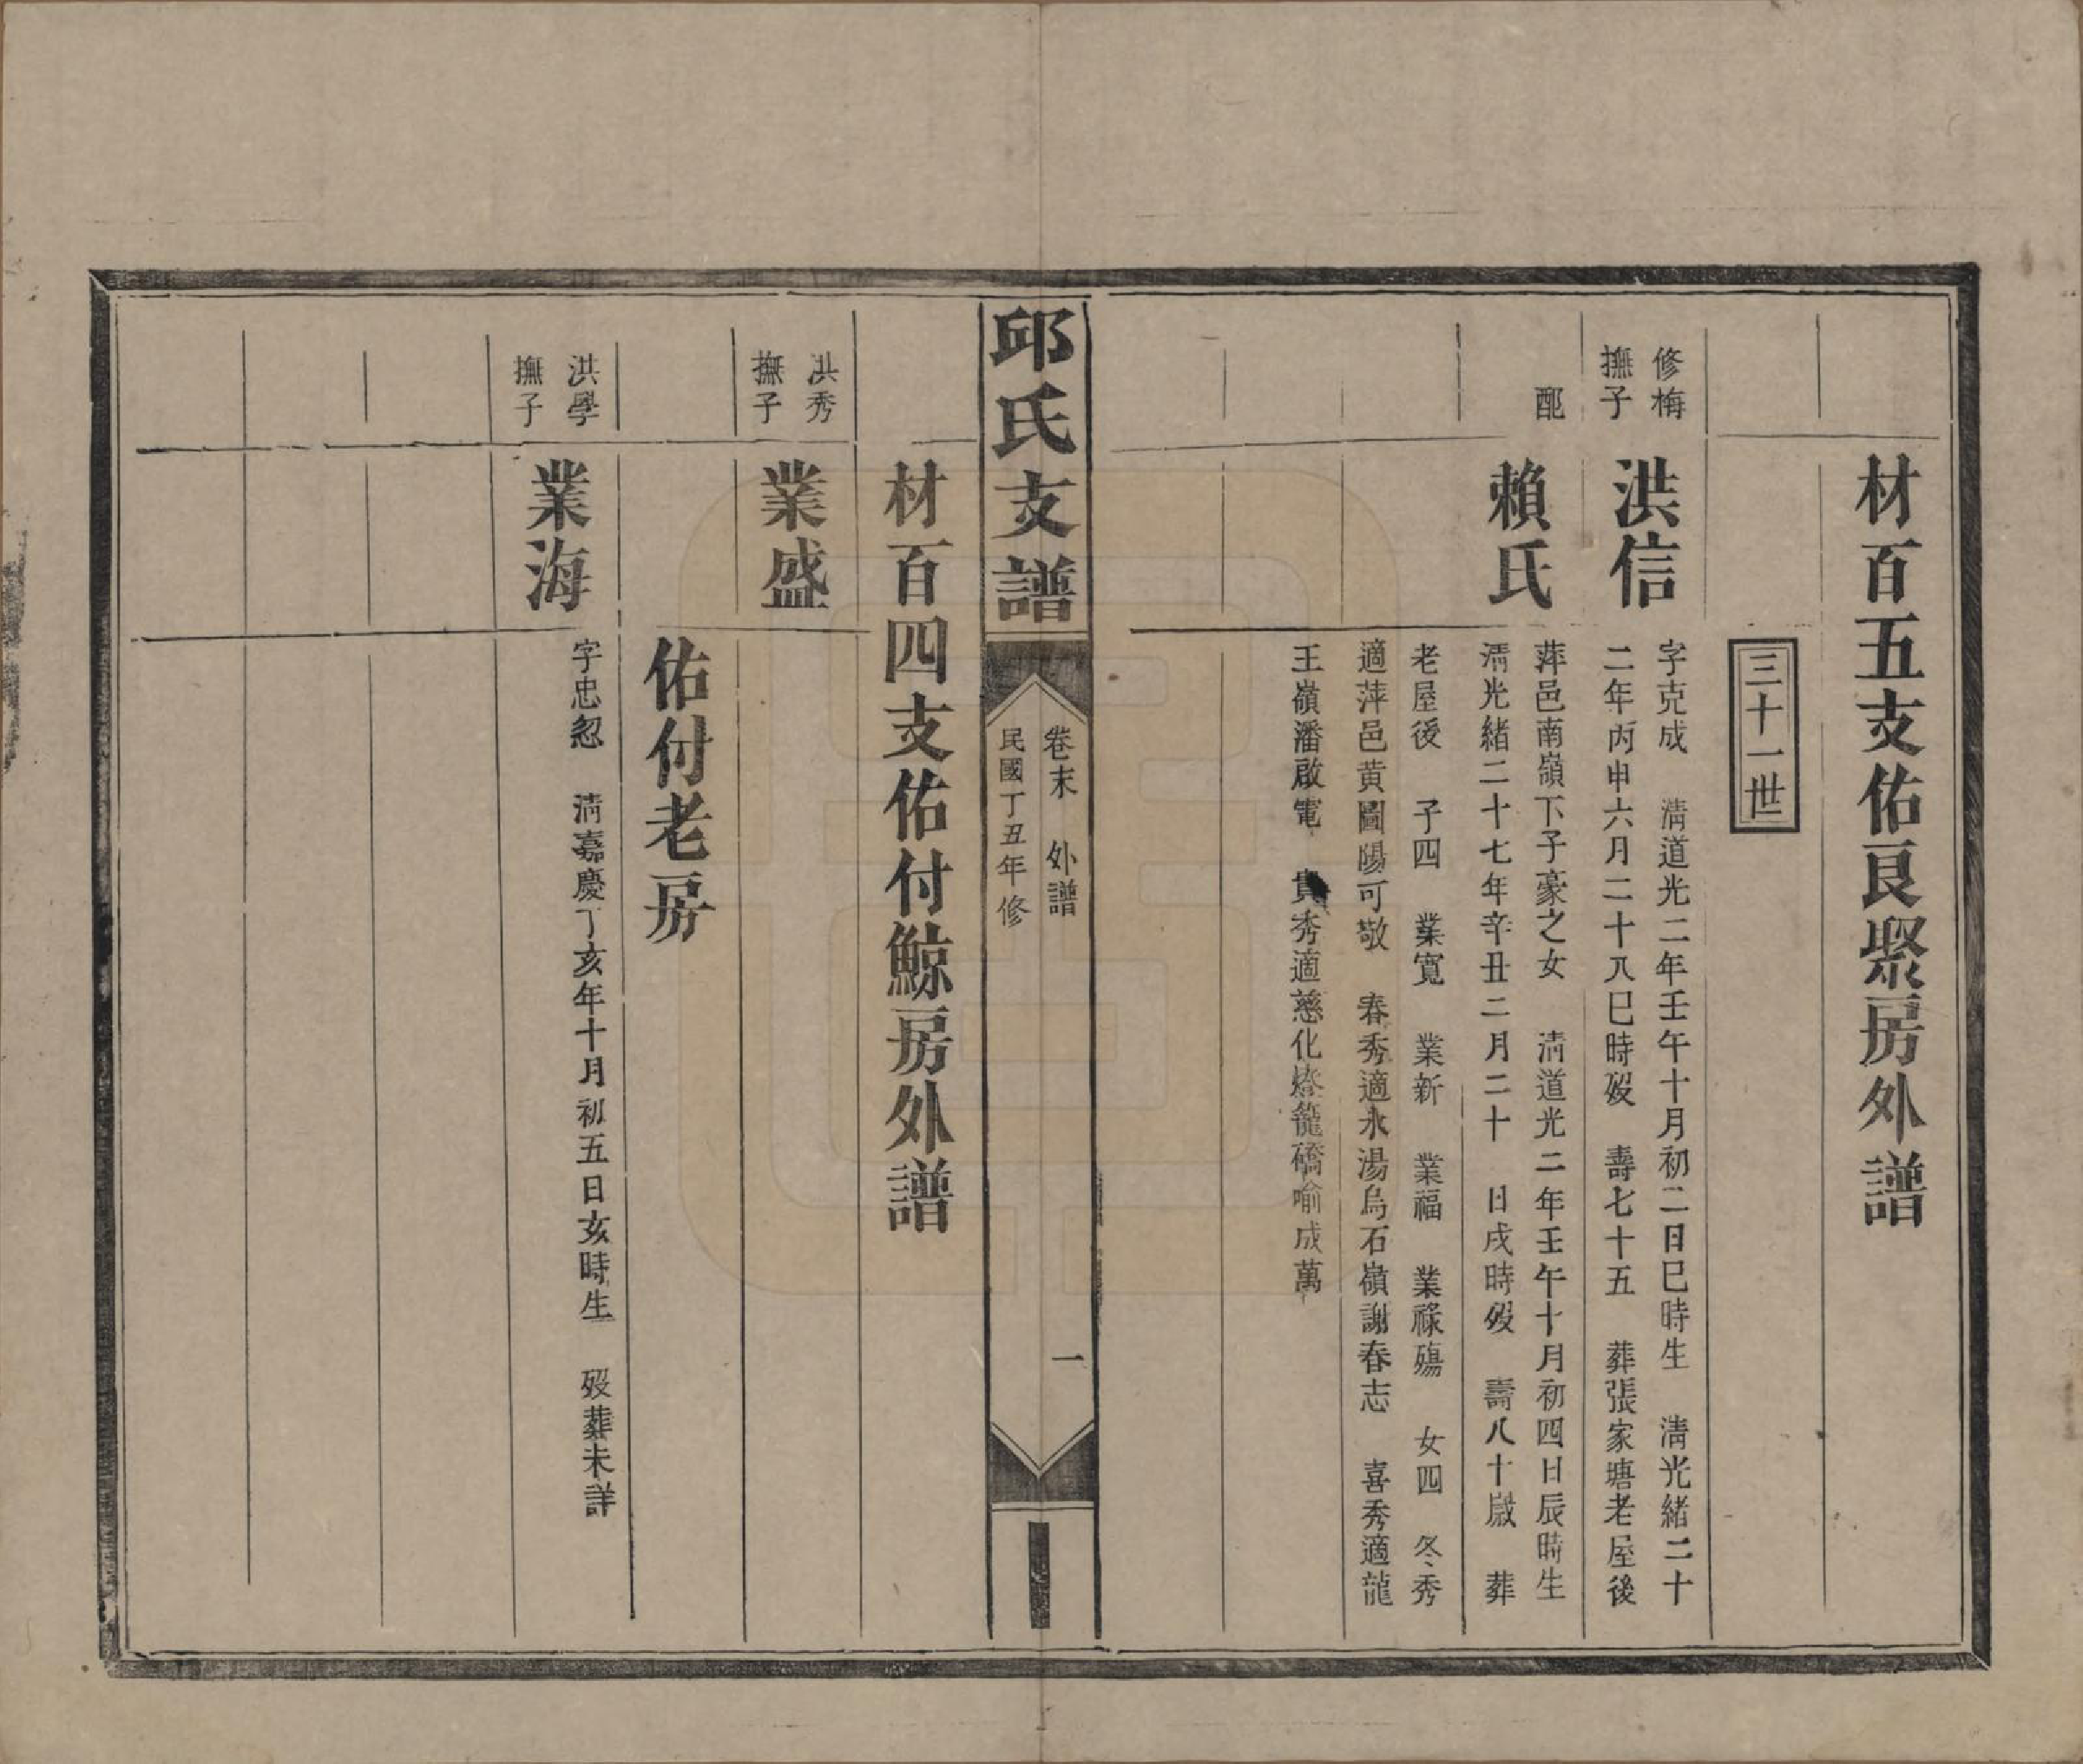 材百五支佑良聚房外譜
三十一世
修梅
撫子
洪信
字克成　淸道光二年壬午十月初二日巳時生　淸光緒二十
二年丙申六月二十八巳時歿　壽七十五　葬張家塘老屋後
配
賴氏
萍邑南嶺下子豪之女　淸道光二年壬午十月初四日辰時生
淸光緒二十七年辛丑二月二十　日戌時歿　壽八十歲　葬
老屋後　子四　業寬　業新　業福　業祿殤　女四　冬秀
適萍邑黃圖陽可敬　春秀適水湯烏石嶺謝春志　喜秀適龍
王嶺潘啟電　貴秀適慈化燈籠礄喻成萬
邱氏支譜
卷末　外譜
民國丁丑年修
一
材百四支佑付鯨房外譜
洪秀
撫子
業盛
佑付老房
洪學
撫子
業海
字忠忍　淸嘉慶丁亥年十月初五日亥時生　歿葬未詳